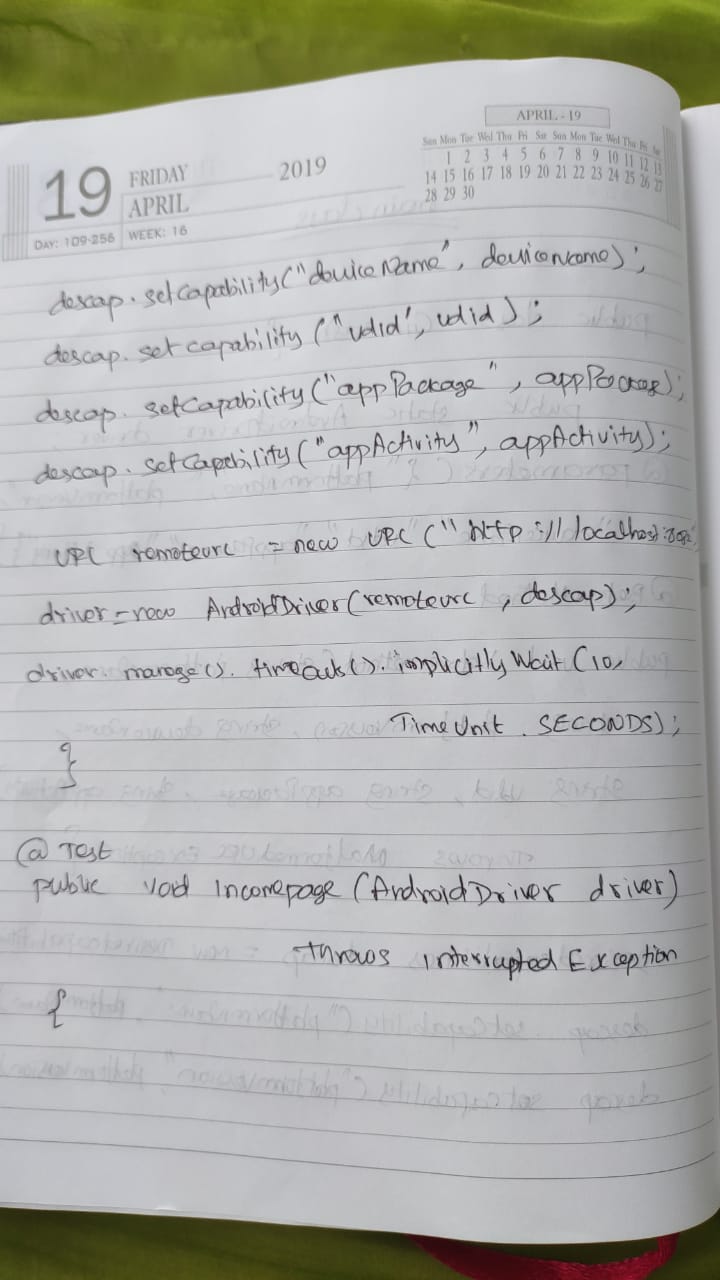 APRIL - 19
Sun Mon Tue Wed Thu Fri Sat Sun Mon Tue Wed Thu Fri Sat
1 2 3 4 5 6 7 8 9 10 11 12 13
14 15 16 17 18 19 20 21 22 23 24 25 26 27
28 29 30
19 FRIDAY 2019
APRIL
DAY: 109-256 WEEK: 16
descap. setCapability("deviceName", deviceName);
descap. set capability ("udid', udid);
descap. setCapability("appPackage",
descap. setCapability("appActivity", appActivity);
URL remoteurl = new URL ("http://localhost
driver = new AndroidDriver(remoteurl, descap);
driver. manage(). timeouts(). implicitly Wait (10,
TimeUnit. SECONDS);
}
@Test
public void Incomepage (AndroidDriver driver)
throws Interrupted Exception
{